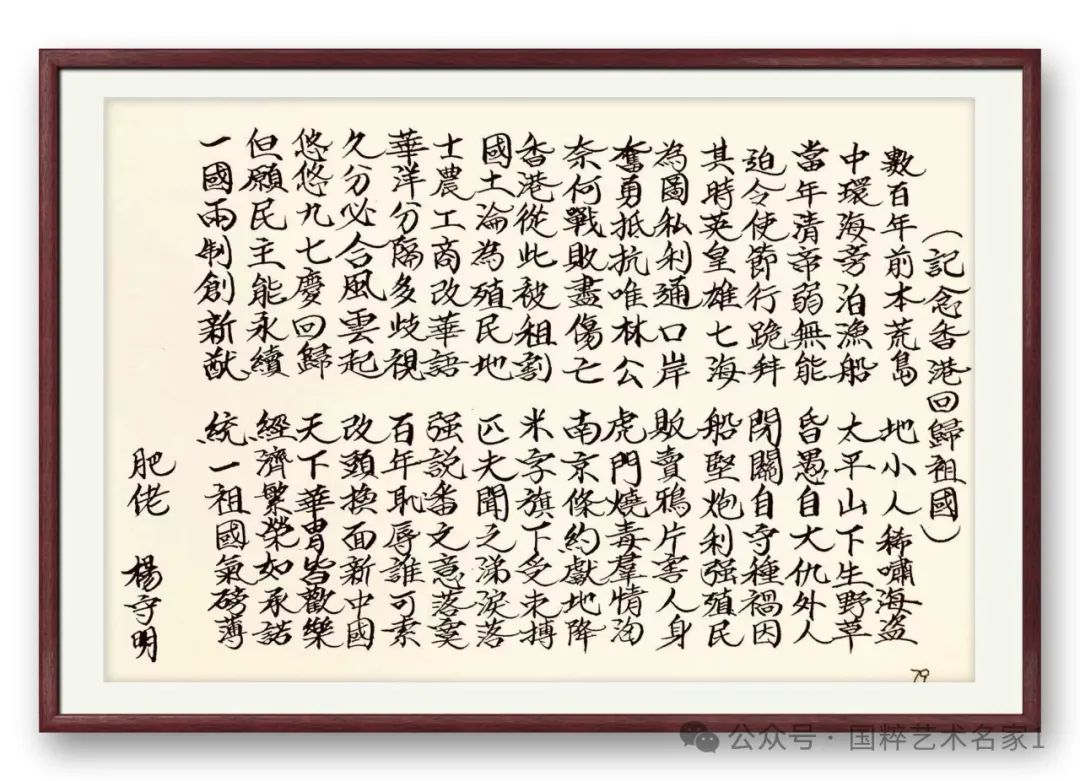 (記念香港回歸祖國)
數百年前本荒島 地小人稀嘯海盜
中環海旁泊漁船 太平山下生野草
當年清帝弱無能 昏愚自大仇外人
迫令使節行跪拜 閉關自守種禍因
其時英皇雄七海 船堅炮利强殖民
為圖私利通口岸 販賣鴉片害人身
奮勇抵抗唯林公 虎門燒毒羣情洶
奈何戰敗盡傷亡 南京條約獻地降
香港從此被租割 米字旗下受束搏
國土淪為殖民地 匹夫聞之涕淚落
士農工商改華語 强説番文意落寞
華洋分隔多歧視 百年恥辱誰可索
久分必合風雲起 改頭換面新中國
悠悠九七慶回歸 天下華冑皆歡樂
但願民主能永續 經濟繁榮如承諾
一國兩制創新猷 統一祖國氣磅薄
肥佬 楊守明
79
公众号·国粹艺术名家1